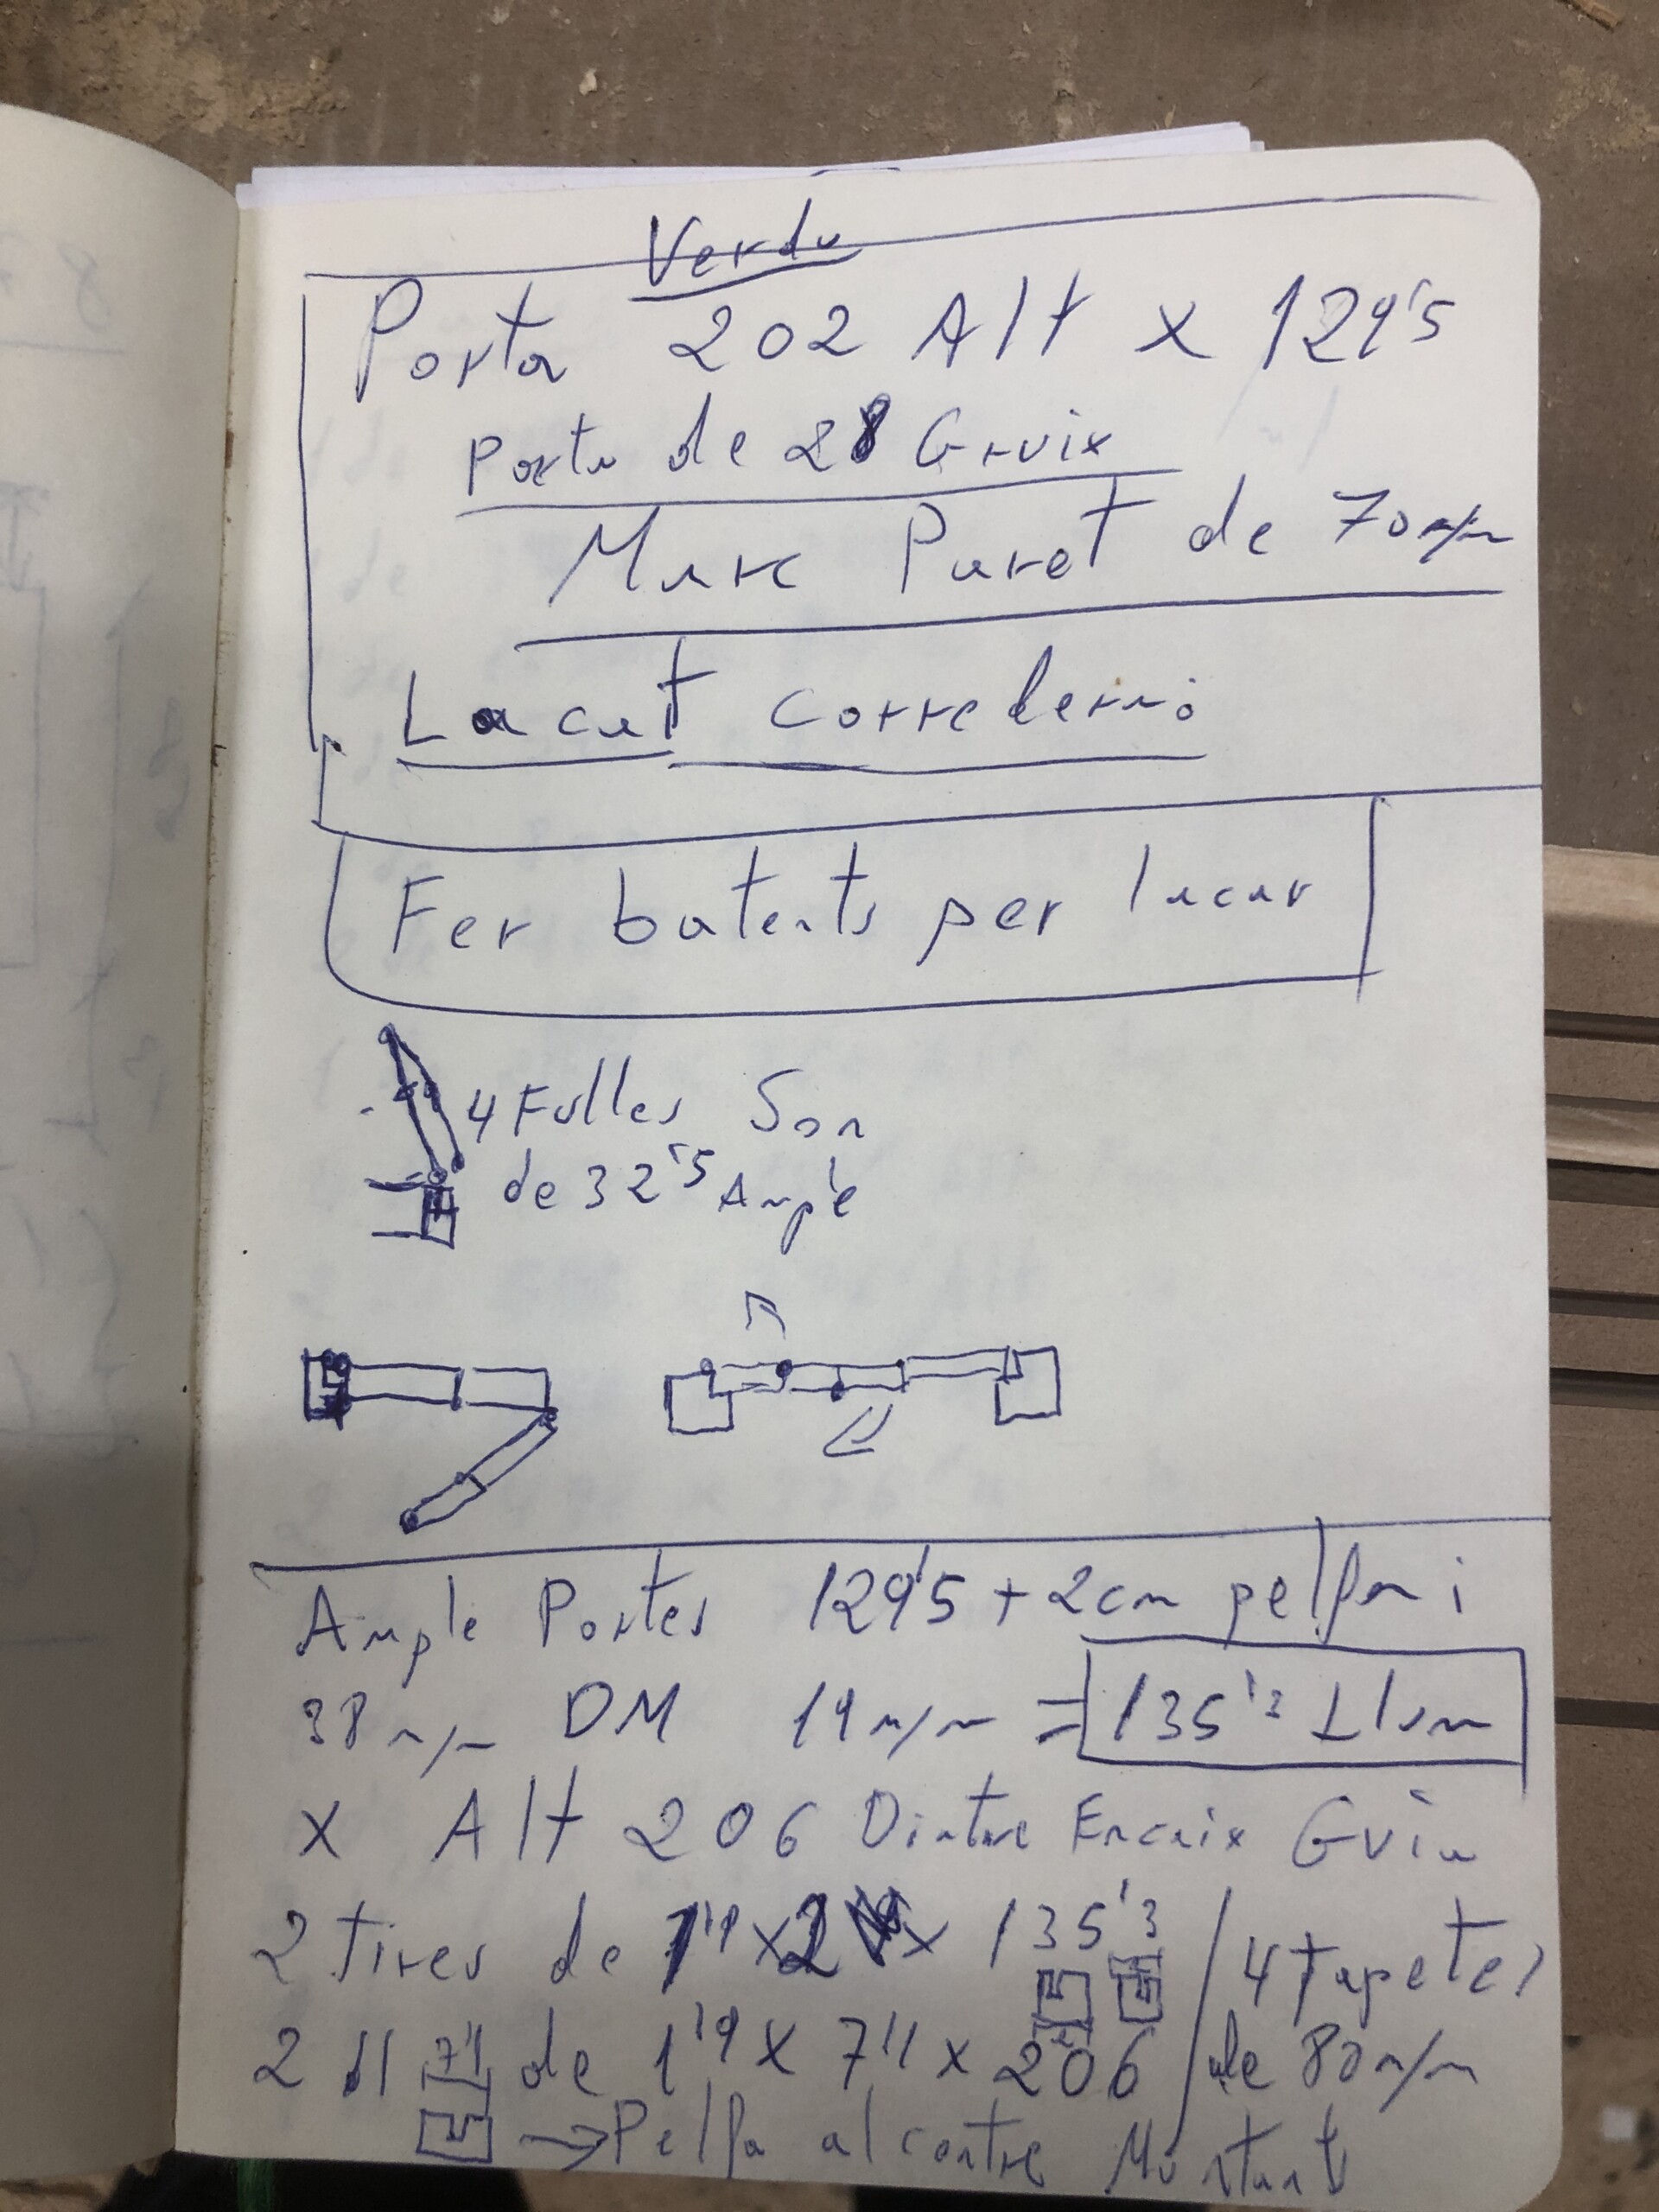 Verdu
Porta 202 Alt x 129'5
Porta de 28 Gruix
Marc Paret de 70 m/m
Lacat
Fer batents per lacar
4 Fulles Son
de 32'5 Ample
Ample Portes 129'5 + 2cm pelfa i
38 m/m DM 19 m/m = 135'3 Llum
x Alt 206 Dintre Encaix Guia
2 tires de x 135'3 / 4 tapetes
2 11 7'1 de 1'9 x 7'1 x 206 / de 80 m/m
→ Pelfa al contre Muntant